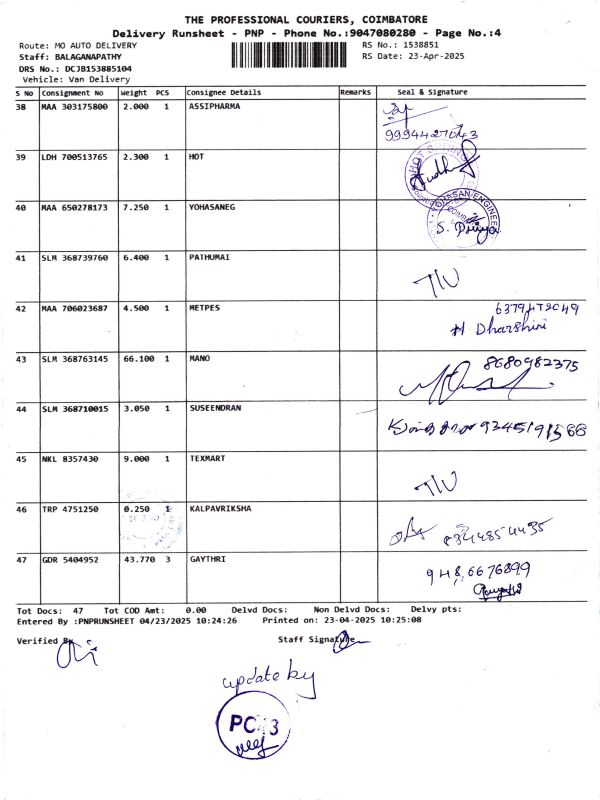 THE PROFESSIONAL COURIERS, COIMBATORE
Delivery Runsheet - PNP - Phone No.:9047080280 - Page No.:4
Route: MO AUTO DELIVERY RS No.: 1538851
Staff: BALAGANAPATHY RS Date: 23-Apr-2025
DRS No.: DCJB153885104
Vehicle: Van Delivery
S No Consignment No Weight PCS Consignee Details Remarks Seal & Signature
38 MAA 303175800 2.000 1 ASSIPHARMA
9994427643
39 LDH 700513765 2.300 1 HOT
40 MAA 650278173 7.250 1 YOHASANEG
S. Priya
41 SLM 368739760 6.400 1 PATHUMAI
42 MAA 706023687 4.500 1 METPES
H Dharshini
43 SLM 368763145 66.100 1 MANO 8680982375
44 SLM 368710015 3.050 1 SUSEENDRAN
9345191566
45 NKL 8357430 9.000 1 TEXMART
46 TRP 4751250 0.250 1 KALPAVRIKSHA
47 GDR 5404952 43.770 3 GAYTHRI
9486676899
Tot Docs: 47 Tot COD Amt: 0.00 Delvd Docs: Non Delvd Docs: Delvy pts:
Entered By :PNPRUNSHEET 04/23/2025 10:24:26 Printed on: 23-04-2025 10:25:08
Verified By Staff Signature
update by